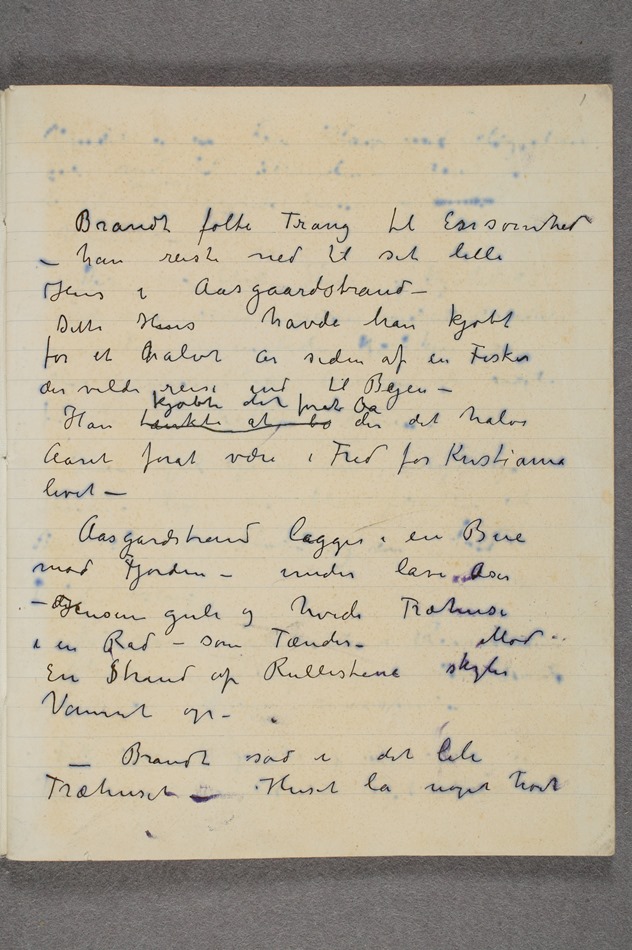 1
Brandt følte Trang til Ensomhed
– han reiste ned til sit lille
Hus i Aasgaardstrand –
Dette Hus havde han kjøbt
for et halvt år siden af en Fisker
der vilde reise ind til Byen –
kjøbte det forat bo
Han tænkte at bo der det halve
Aaret forat være i Fred for Kristiania
livet –
Aasgardstrand ligger i en Bue
mod Fjorden – under lave Åser
– gule og hvide Træhuse
i en Rad – som Tænder – Mod
En Strand af Rullestene skyller
Vannet op –
– Brandt sad i det lille
Træhuset – Huset lå noget høit